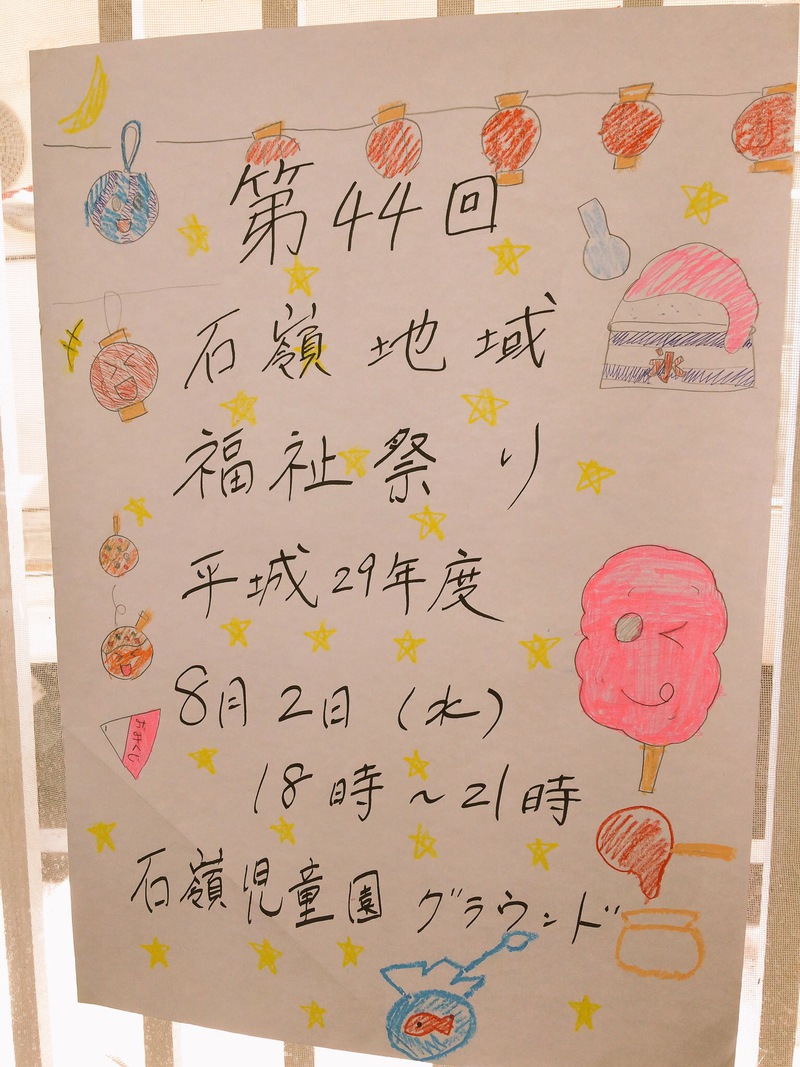 第44回
氷
石嶺地域
福祉祭り
平城29年度
8月2日(水)
おみくじ
18時~21時
石嶺児童園 グラウンド